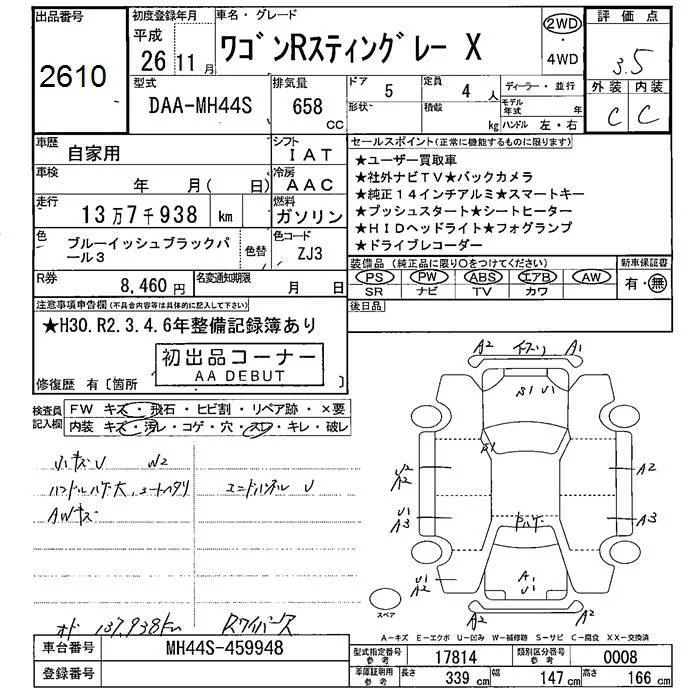 出品番号
2610
初度登録年月
平成
26年11月
車名・グレード
ワゴンRスティングレー X
2WD
・
4WD
評価点
3.5
外装 内装
C C
型式
DAA-MH44S
排気量
658
CC
ドア
5
形状
定員
4人
積載
kg
ディーラー・並行
モデル年式 年
ハンドル 左・右
車歴
自家用
シフト
IAT
車検
年 月( 日)
冷房
AAC
走行
13万7千938 km
燃料
ガソリン
色
ブルーイッシュブラックパール3
色替
色コード
ZJ3
R券
8,460円
名変通知期限
月 日
セールスポイント(正常に機能するものに限ります)
★ユーザー買取車
★社外ナビTV★バックカメラ
★純正14インチアルミ★スマートキー
★プッシュスタート★シートヒーター
★HIDヘッドライト★フォグランプ
★ドライブレコーダー
装備品(純正品に限り○をつけてください)
PS PW ABS エアB AW
SR ナビ TV カワ
新車保証書
有・無
後日品
注意事項申告欄(不具合内容等は具体的に記入して下さい)
★H30.R2.3.4.6年整備記録簿あり
初出品コーナー
AA DEBUT
修復歴 有〔箇所 〕
検査員記入欄
FW キズ・飛石・ヒビ割・リペア跡・×要
内装 キズ・汚レ・コゲ・穴・スレ・キレ・破レ
小キズU W2
AWキズ
エンドパネル U
オド 137,938km
Rワイパーレス
A2 A1
S1 U1
S1
U2
A2
A2
U1
A3
A3
A1
U1
U1
A2
A2
スペア
A-キズ E-エクボ U-凹み W-補修跡 S-サビ C-腐食 XX-交換済
車台番号
MH44S-459948
登録番号
型式指定番号
参考
17814
類別区分番号
参考
0008
車庫証明用
参考
長さ 339 cm 幅 147 cm 高さ 166 cm